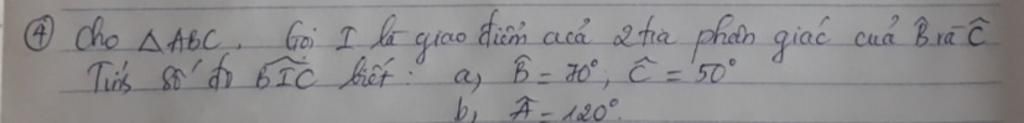 ④ Cho △ABC. Gọi I là giao điểm của 2 tia phân giác của B̂ và Ĉ
Tính số đo B̂IC biết: a, B̂ = 70°, Ĉ = 50°
b, Â = 120°.